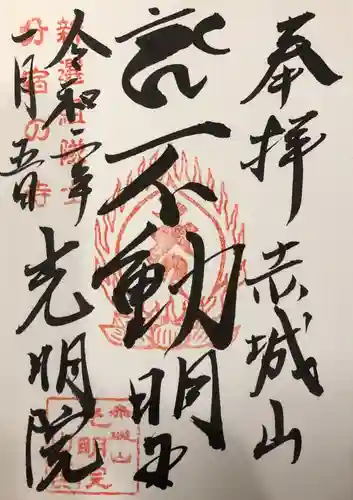 奉拝 赤城山
不動明王
光明院
令和二年
一月五日
新選組隊士
分宿の寺
赤城山
光明院